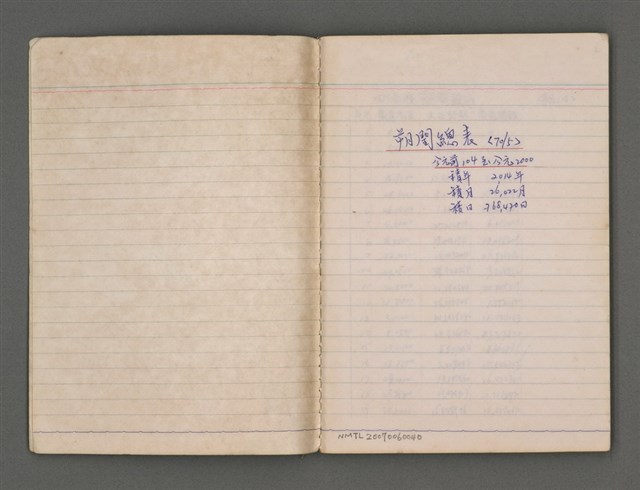 朔閏總表 <70/5>
公元前104至公元2000
積年 2014年
積月 26,022月
積日 768,420日
NMTL20070060040